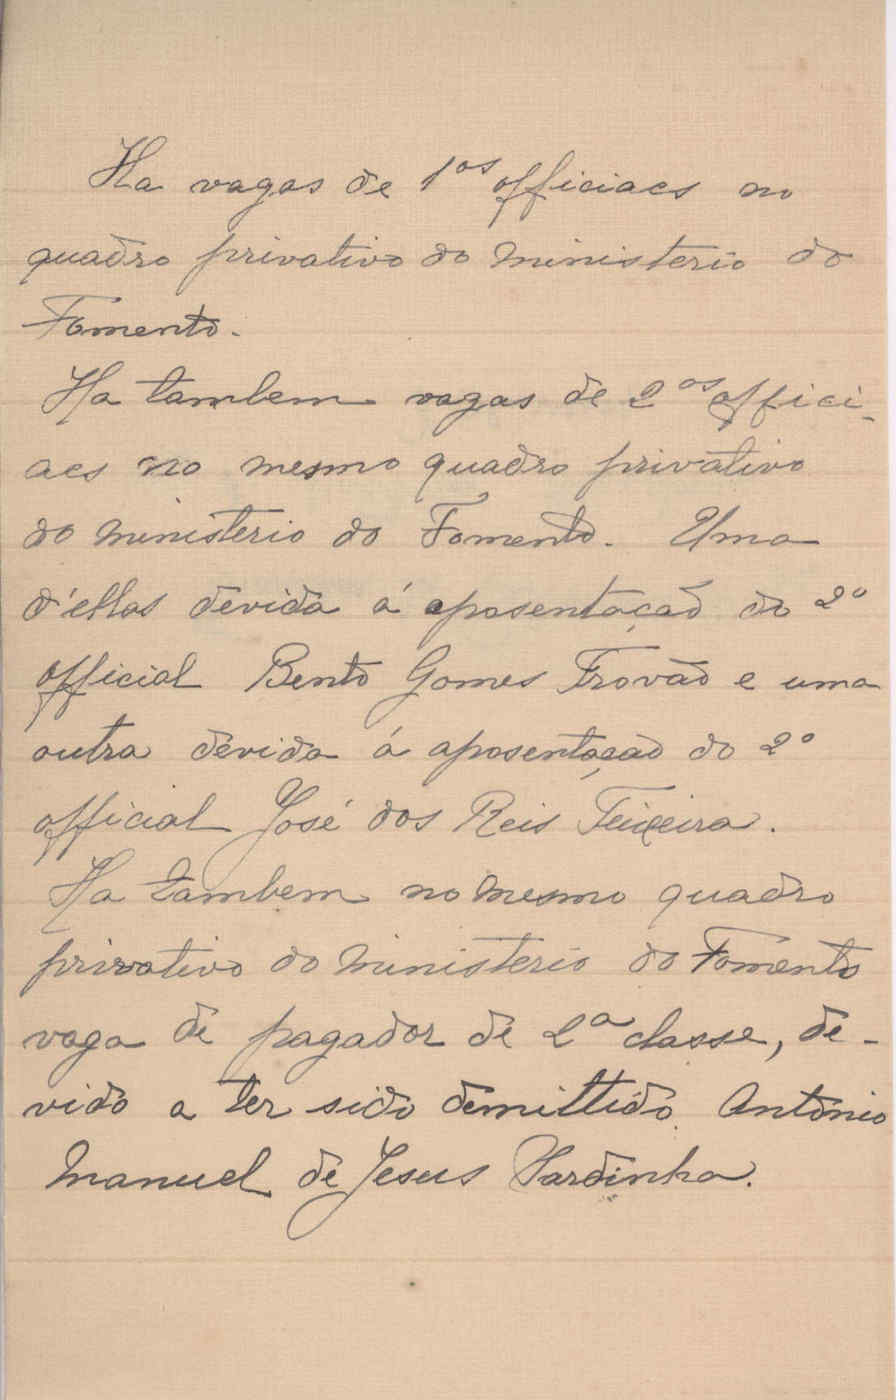 Ha vagas de 1os officiaes no
quadro privativo do ministerio do
Fomento.
Ha tambem vagas de 2os offici-
aes no mesmo quadro privativo
do ministerio do Fomento. Uma
d'ellas devida á aposentação do 2o
official Bento Gomes Trovão e uma
outra devida á aposentação do 2o
official José dos Reis Teixeira.
Ha tambem no mesmo quadro
privativo do ministerio do Fomento
vaga de pagador de 2a classe, de-
vido a ter sido demittido Antonio
Manuel de Jesus Sardinha.